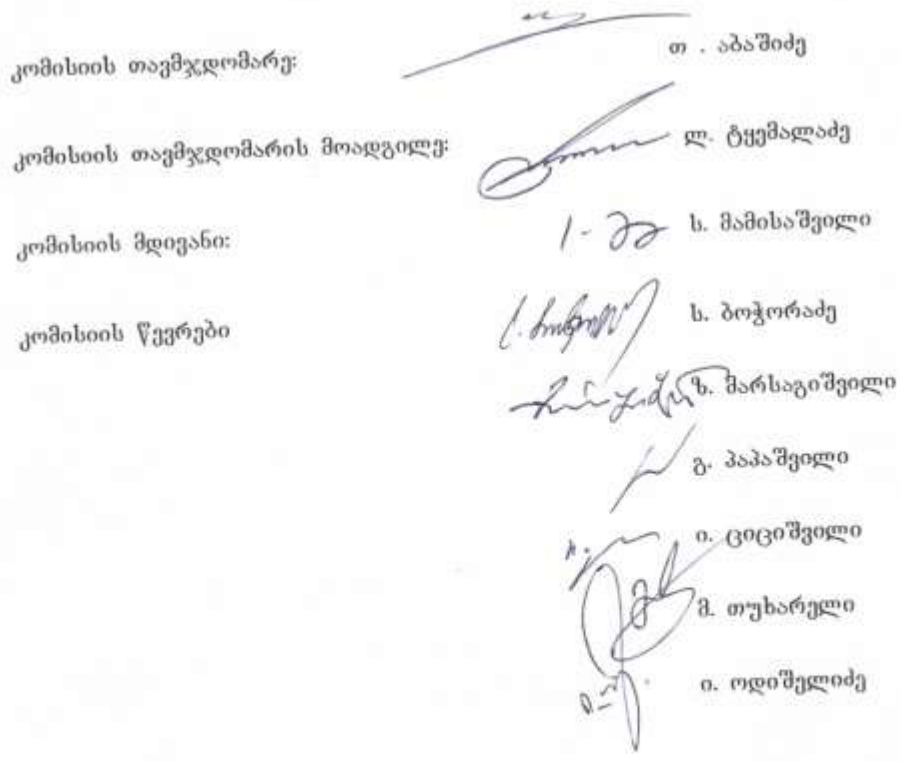 კომისიის თავმჯდომარე: თ . აბაშიძე
კომისიის თავმჯდომარის მოადგილე: ლ. ტყემალაძე
კომისიის მდივანი: ს. მამისაშვილი
კომისიის წევრები ს. ბოჭორაძე
ზ. მარსაგიშვილი
გ. პაპაშვილი
ი. ციციშვილი
მ. თუხარელი
ი. ოდიშელიძე